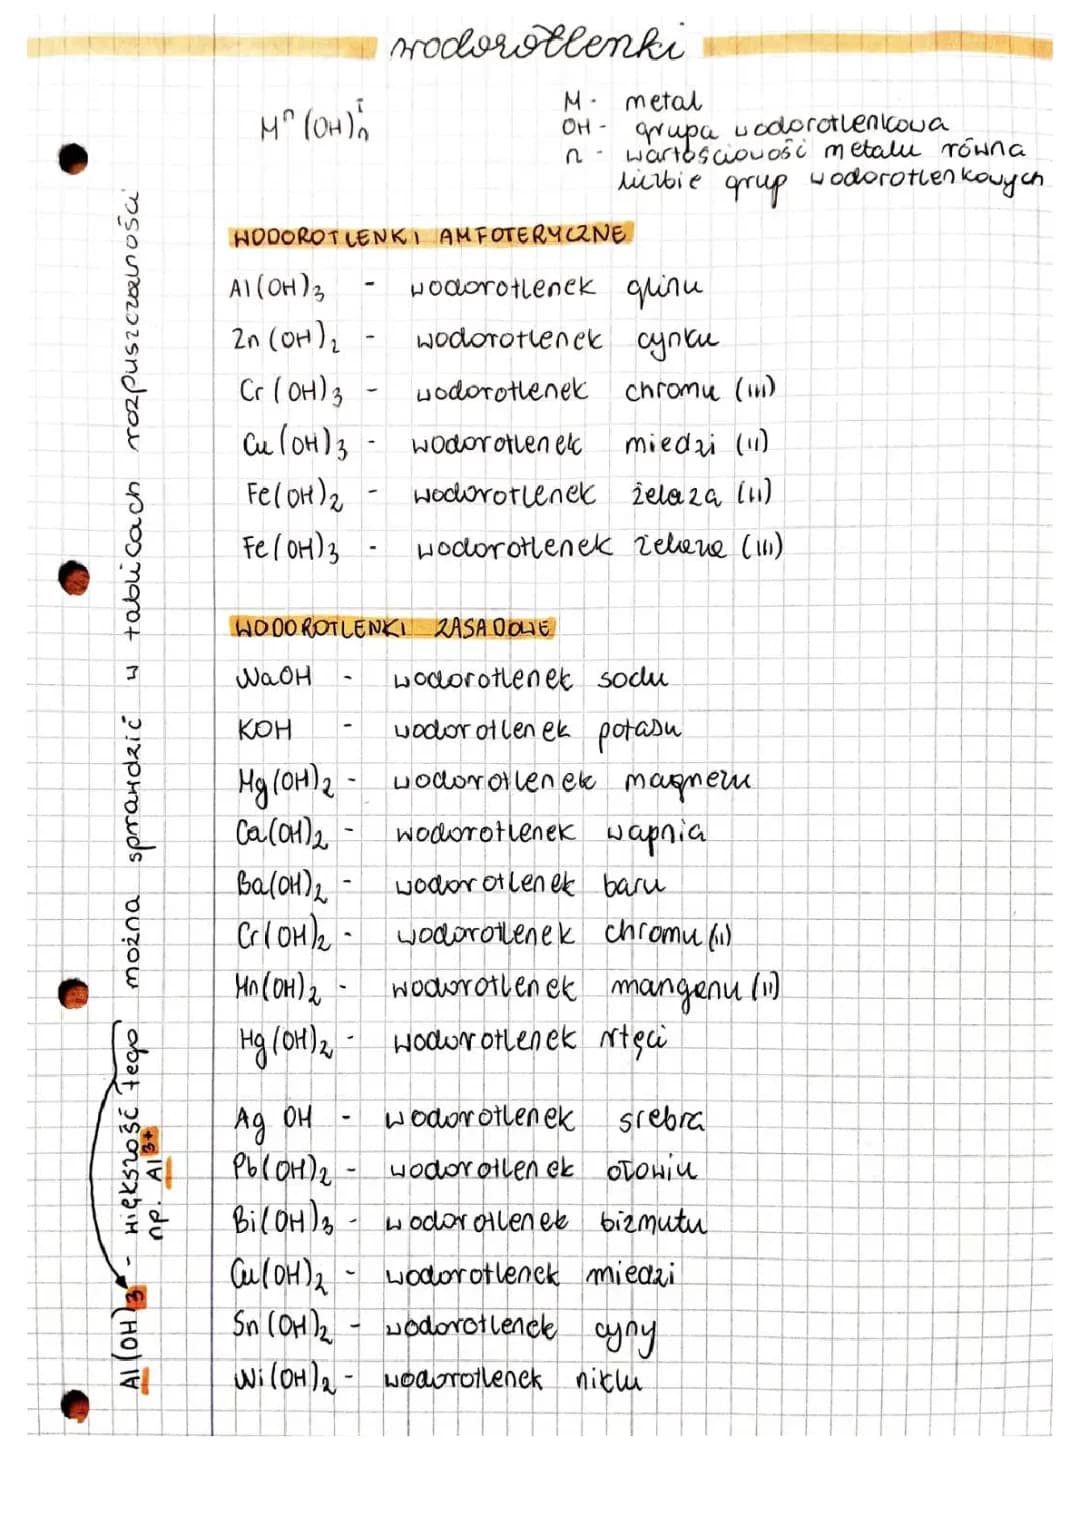 wodorotlenki
M^n (OH)^I_n
M - metal
OH - grupa wodorotlenkowa
n - wartościowość metalu równa
liczbie grup wodorotlenkowych
WODOROTLENKI AMFOTERYCZNE
Al(OH)₃ - wodorotlenek glinu
Zn(OH)₂ - wodorotlenek cynku
Cr(OH)₃ - wodorotlenek chromu (III)
Cu(OH)₃ - wodorotlenek miedzi (II)
Fe(OH)₂ - wodorotlenek żelaza (II)
Fe(OH)₃ - wodorotlenek żelaza (III)
WODOROTLENKI ZASADOWE
NaOH - wodorotlenek sodu
KOH - wodorotlenek potasu
Mg(OH)₂ - wodorotlenek magnezu
Ca(OH)₂ - wodorotlenek wapnia
Ba(OH)₂ - wodorotlenek baru
Cr(OH)₂ - wodorotlenek chromu (II)
Mn(OH)₂ - wodorotlenek manganu (II)
Hg(OH)₂ - wodorotlenek rtęci
Ag OH - wodorotlenek srebra
Pb(OH)₂ - wodorotlenek ołowiu
Bi(OH)₃ - wodorotlenek bizmutu
Cu(OH)₂ - wodorotlenek miedzi
Sn(OH)₂ - wodorotlenek cyny
Ni(OH)₂ - wodorotlenek niklu
Al(OH)₃ - większość tego można sprawdzić w tablicach rozpuszczalności
np. Al³⁺